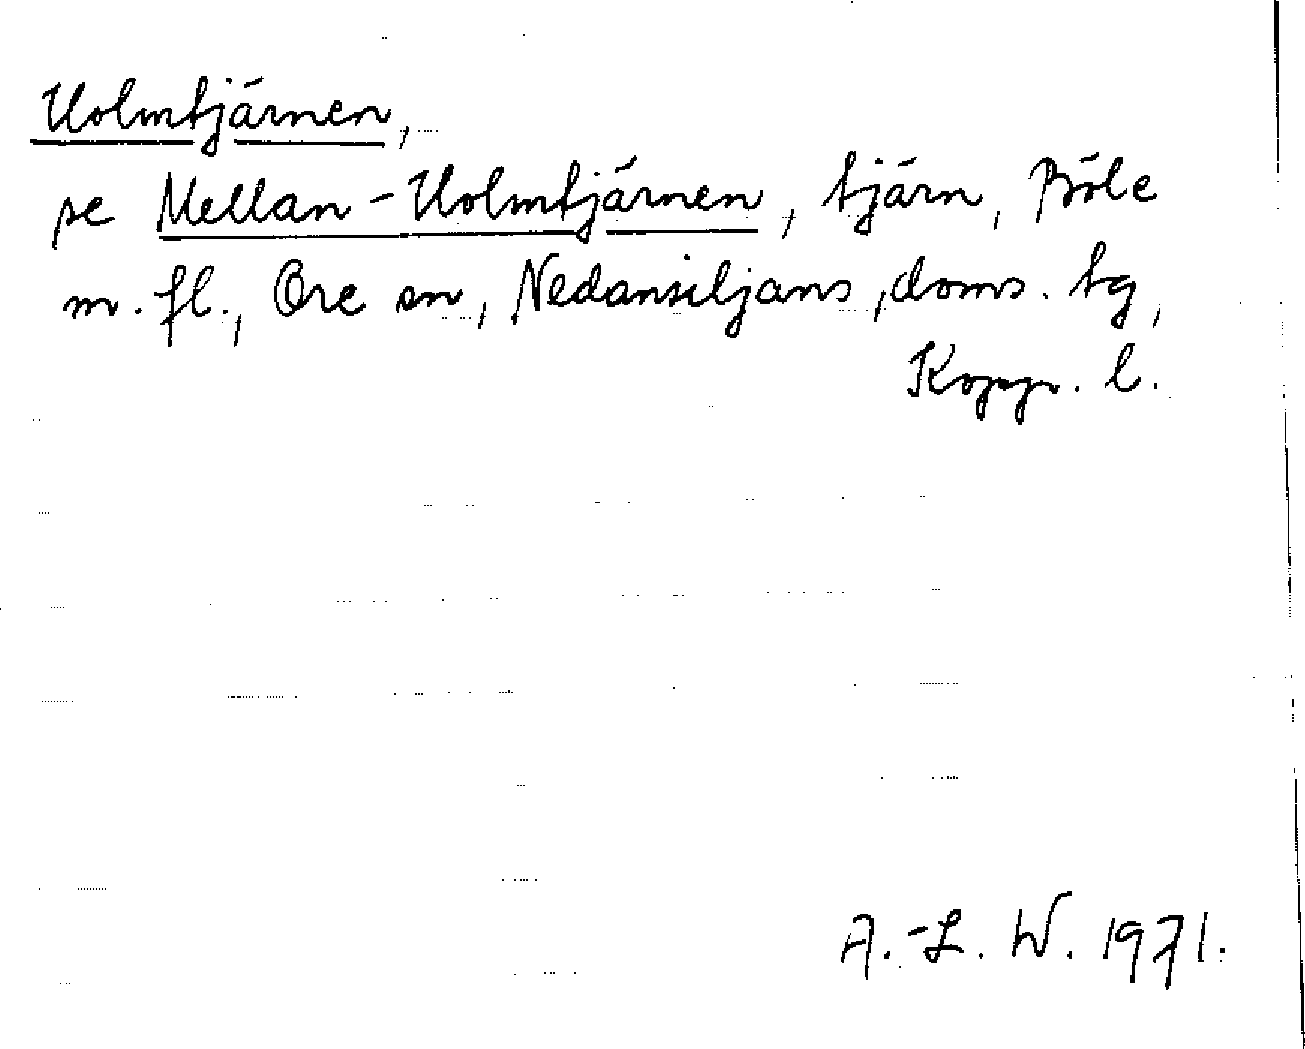 Holmtjärnen,
se Mellan-Holmtjärnen, tjärn, Böle
m. fl., Ore sn, Nedansiljans doms. tg,
Kopp. l.
A.-L. W. 1971.